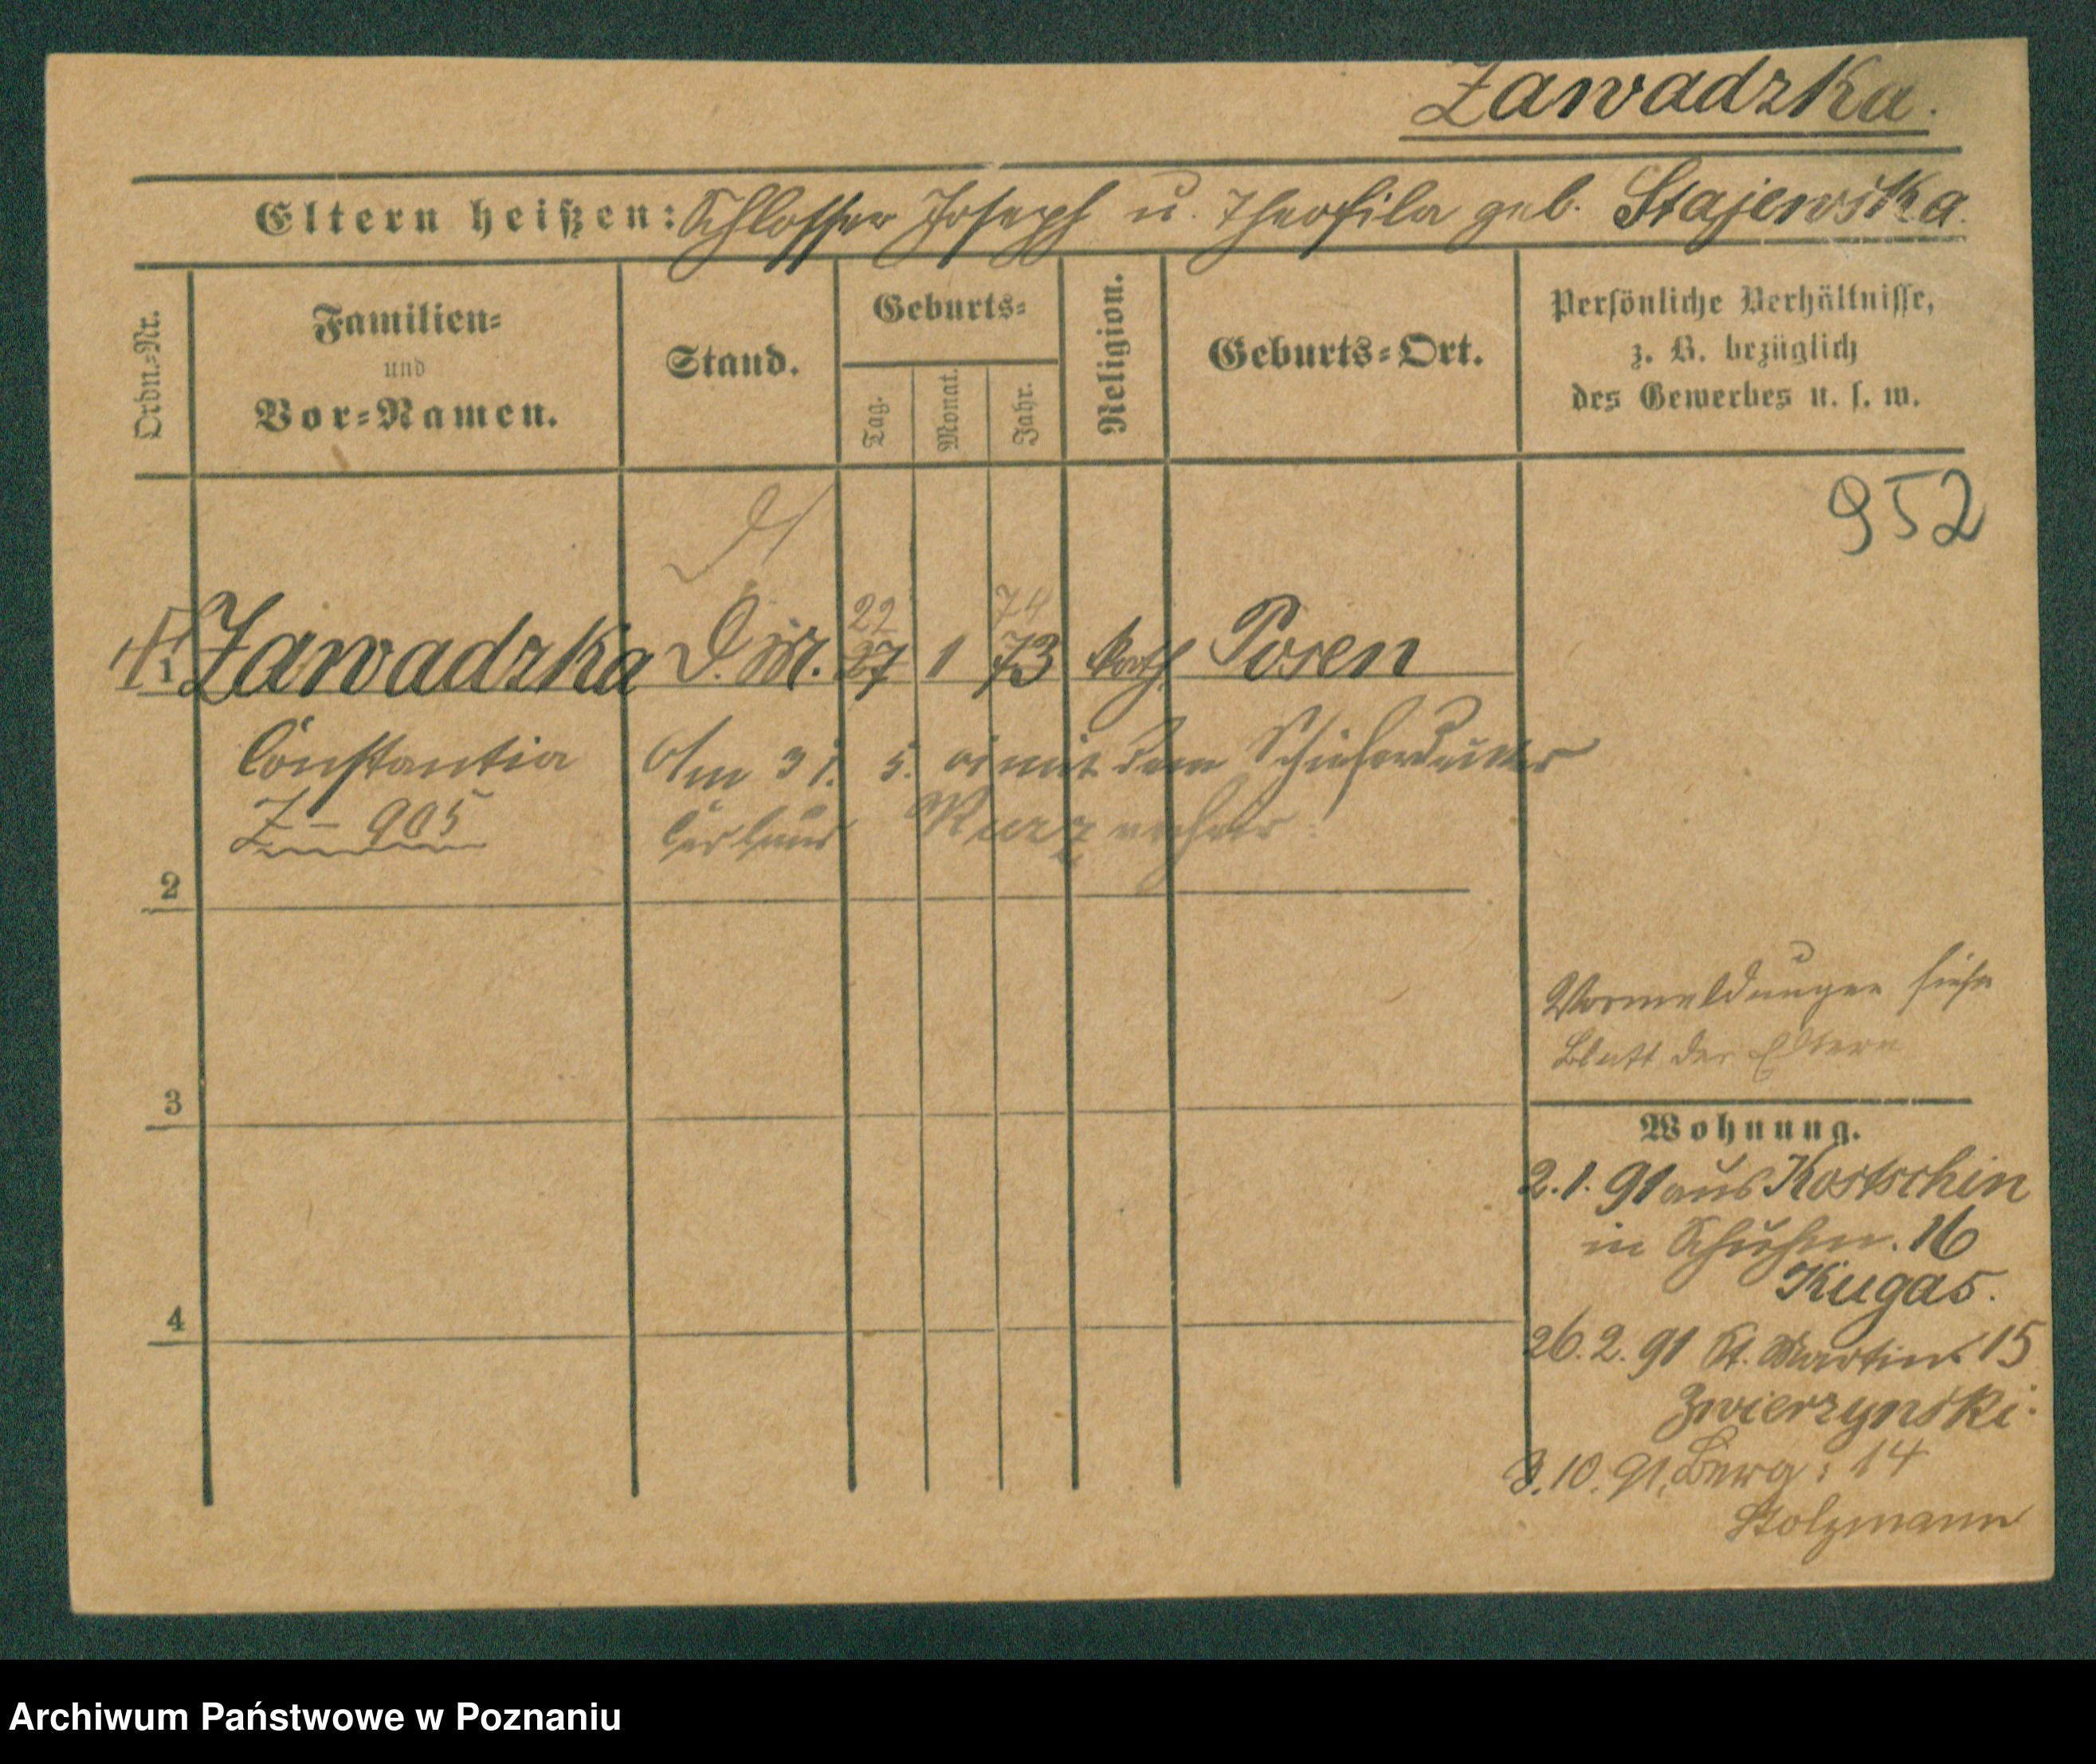 Zawadzka.
Eltern heißen: Schlosser Joseph u. Theofila geb. Stajewska.
Ordn.=Nr.
Familien=
und
Vor=Namen.
Stand.
Geburts=
Tag.
Monat.
Jahr.
Religion.
Geburts=Ort.
Persönliche Verhältnisse,
z. B. bezüglich
des Gewerbes u. s. w.
952
22 74
1 Zawadzka D. M. 27 1 73 kath Posen
Constantia Am 31. 5. mit dem Schieferdecker
Z - 905 Kurz
2
Vormeldungen siehe
Blatt der Eltern
3
Wohnung.
2. 1. 91 aus Kostschin
in Schuhm. 16
Kugas.
4
26. 2. 91 St. Martin 15
Zwierzynski.
3. 10. 91. Berg: 14
Stolzmann
Archiwum Państwowe w Poznaniu